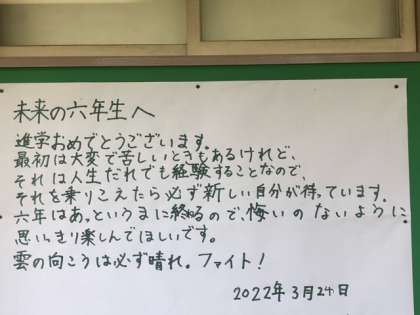 未来の六年生へ
進学おめでとうございます。
最初は大変で苦しいときもあるけれど、
それは人生だれでも経験することなので、
それを乗りこえたら必ず新しい自分が待っています。
六年はあっというまに終わるので、悔いのないように
思いっきり楽しんでほしいです。
雲の向こうは必ず晴れ。ファイト！
2022年3月24日